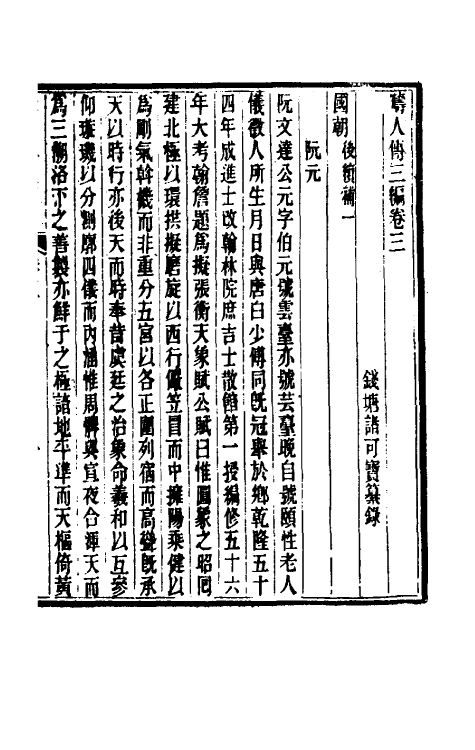 疇人傳三編卷三
錢塘諸可寶纂錄
國朝後續補一
阮元
阮文達公元字伯元號雲臺亦號芸臺晚自號頤性老人
儀徵人所生月日與唐白少傅同既冠舉於鄉乾隆五十
四年成進士改翰林院庶吉士散館第一授編修五十六
年大考翰詹題爲擬張衡天象賦公賦曰惟圜象之昭囘
建北極以環拱擬磨旋以西行儼笠冒而中擁陽乘健以
爲剛氣斡機而非重分五宮以各正圍列宿而高聳既承
天以時行亦後天而時奉昔虞廷之治象命羲和以互參
仰璇璣以分測廓四儀而內涵惟周髀與宣夜合渾天而
爲三鄉洛下之善製亦鮮于之極諳地平準而天樞倚黃